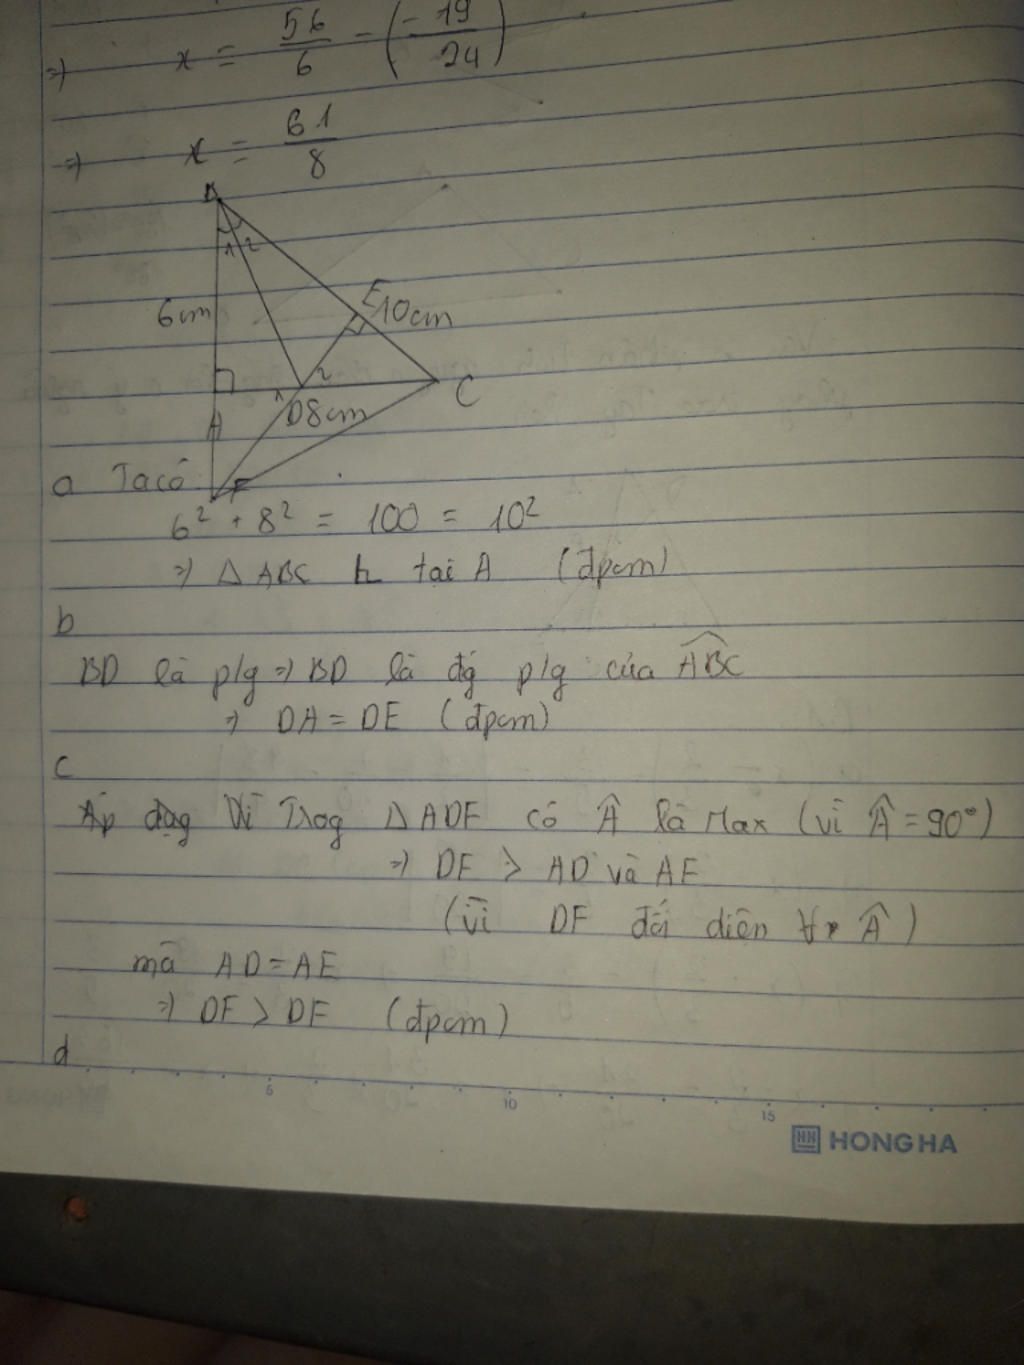 => x = 56/6 - (-19/24)
=> x = 61/8
B
1 2
6cm
E
10cm
2
C
1
D
8cm
A
F
a Ta có
6² + 8² = 100 = 10²
=> Δ ABC tại A (đpcm)
b
BD là p/g => BD là đg p/g của ABC
=> DA = DE (đpcm)
c
Vì Trog Δ ADF có Â là Max (vì Â = 90°)
=> DF > AD và AF
(vì DF đối diện Â)
mà AD = AE
=> DF > DE (đpcm)
d
5
10
15
HH HONG HA